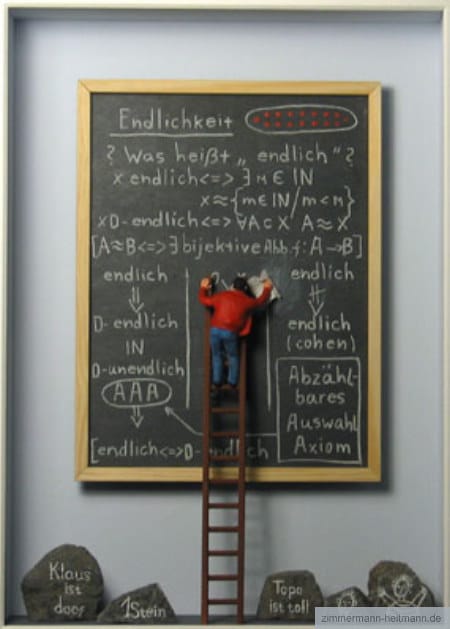 Endlichkeit
? Was heißt „ endlich " ?
x endlich <=> ∃ n ∈ IN
x ≈ {m ∈ IN / m < n}
x D-endlich <=> ∀A ⊂ X A ≈ X
[A ≈ B <=> ∃ bijektive Abb. f: A → B]
endlich
⇓
D-endlich
IN
D-unendlich
AAA
⇓
[endlich <=> D-endlich
endlich
endlich
(cohen)
Abzähl-
bares
Auswahl
Axiom
Klaus
ist
doof
1Stein
Topo
ist toll
zimmermann-heitmann.de